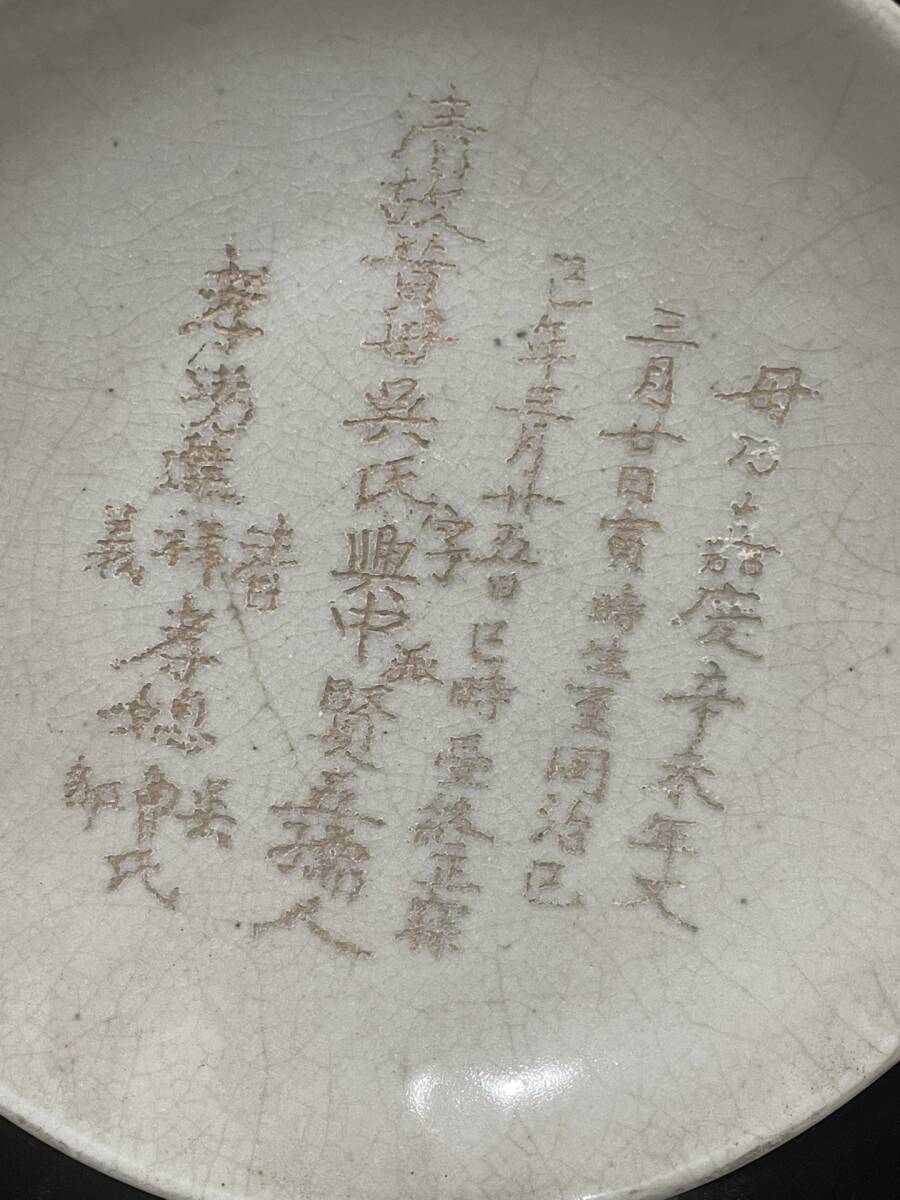 母乃嘉慶辛未年又
三月廿日寅時生至同治己
巳年三月廿五日巳時受終正寢
清故母吳氏字興中派賢五孺人
孝男祥義孝媳吳氏